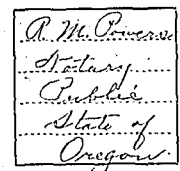 R. M. Powers
Notary
Public
State of
Oregon